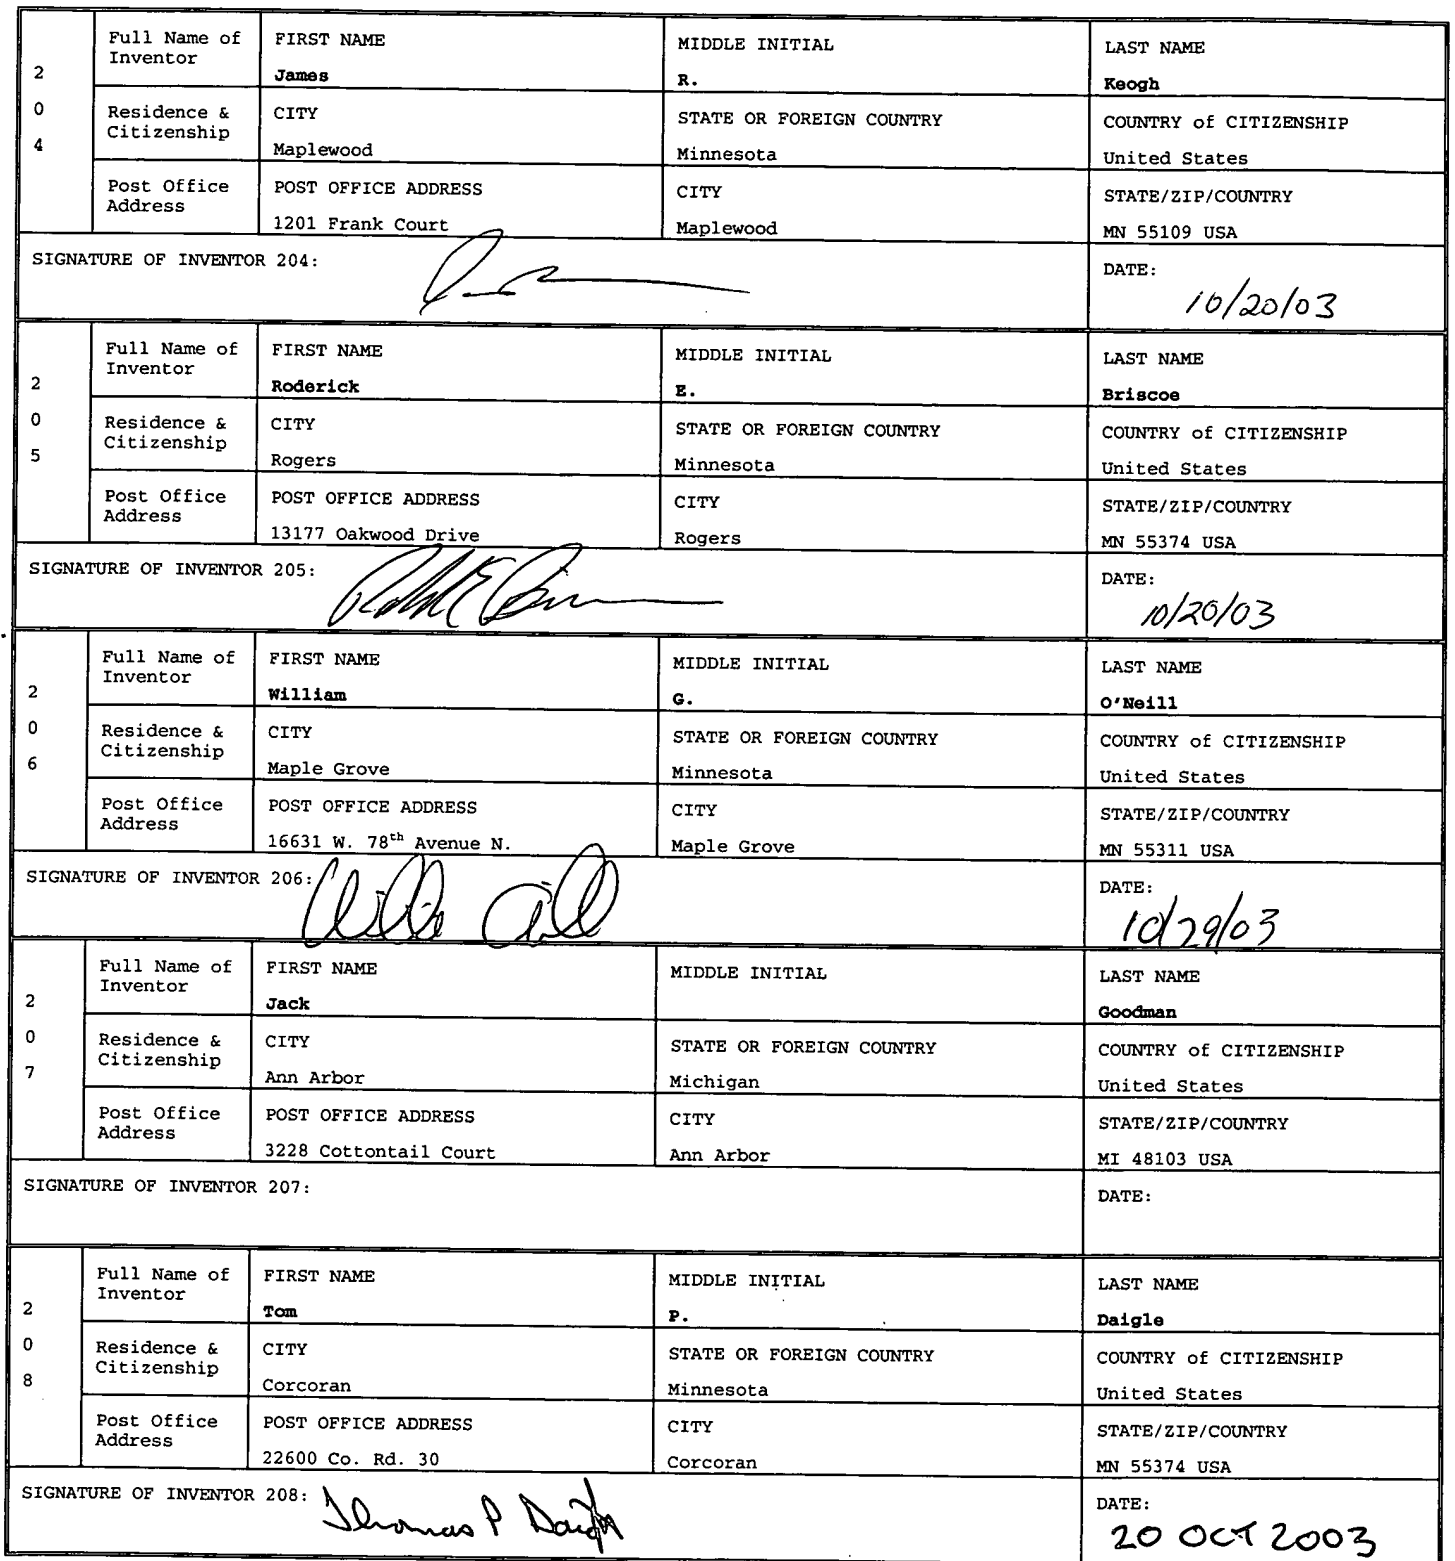 2
0
4
Full Name of
Inventor
FIRST NAME
James
MIDDLE INITIAL
R.
LAST NAME
Keogh
Residence &
Citizenship
CITY
Maplewood
STATE OR FOREIGN COUNTRY
Minnesota
COUNTRY of CITIZENSHIP
United States
Post Office
Address
POST OFFICE ADDRESS
1201 Frank Court
CITY
Maplewood
STATE/ZIP/COUNTRY
MN 55109 USA
SIGNATURE OF INVENTOR 204:
DATE:
10/20/03
2
0
5
Full Name of
Inventor
FIRST NAME
Roderick
MIDDLE INITIAL
E.
LAST NAME
Briscoe
Residence &
Citizenship
CITY
Rogers
STATE OR FOREIGN COUNTRY
Minnesota
COUNTRY of CITIZENSHIP
United States
Post Office
Address
POST OFFICE ADDRESS
13177 Oakwood Drive
CITY
Rogers
STATE/ZIP/COUNTRY
MN 55374 USA
SIGNATURE OF INVENTOR 205:
DATE:
10/20/03
2
0
6
Full Name of
Inventor
FIRST NAME
William
MIDDLE INITIAL
G.
LAST NAME
O'Neill
Residence &
Citizenship
CITY
Maple Grove
STATE OR FOREIGN COUNTRY
Minnesota
COUNTRY of CITIZENSHIP
United States
Post Office
Address
POST OFFICE ADDRESS
16631 W. 78th Avenue N.
CITY
Maple Grove
STATE/ZIP/COUNTRY
MN 55311 USA
SIGNATURE OF INVENTOR 206:
DATE:
10/29/03
2
0
7
Full Name of
Inventor
FIRST NAME
Jack
MIDDLE INITIAL
LAST NAME
Goodman
Residence &
Citizenship
CITY
Ann Arbor
STATE OR FOREIGN COUNTRY
Michigan
COUNTRY of CITIZENSHIP
United States
Post Office
Address
POST OFFICE ADDRESS
3228 Cottontail Court
CITY
Ann Arbor
STATE/ZIP/COUNTRY
MI 48103 USA
SIGNATURE OF INVENTOR 207:
DATE:
2
0
8
Full Name of
Inventor
FIRST NAME
Tom
MIDDLE INITIAL
P.
LAST NAME
Daigle
Residence &
Citizenship
CITY
Corcoran
STATE OR FOREIGN COUNTRY
Minnesota
COUNTRY of CITIZENSHIP
United States
Post Office
Address
POST OFFICE ADDRESS
22600 Co. Rd. 30
CITY
Corcoran
STATE/ZIP/COUNTRY
MN 55374 USA
SIGNATURE OF INVENTOR 208: Thomas P Daigle
DATE:
20 OCT 2003